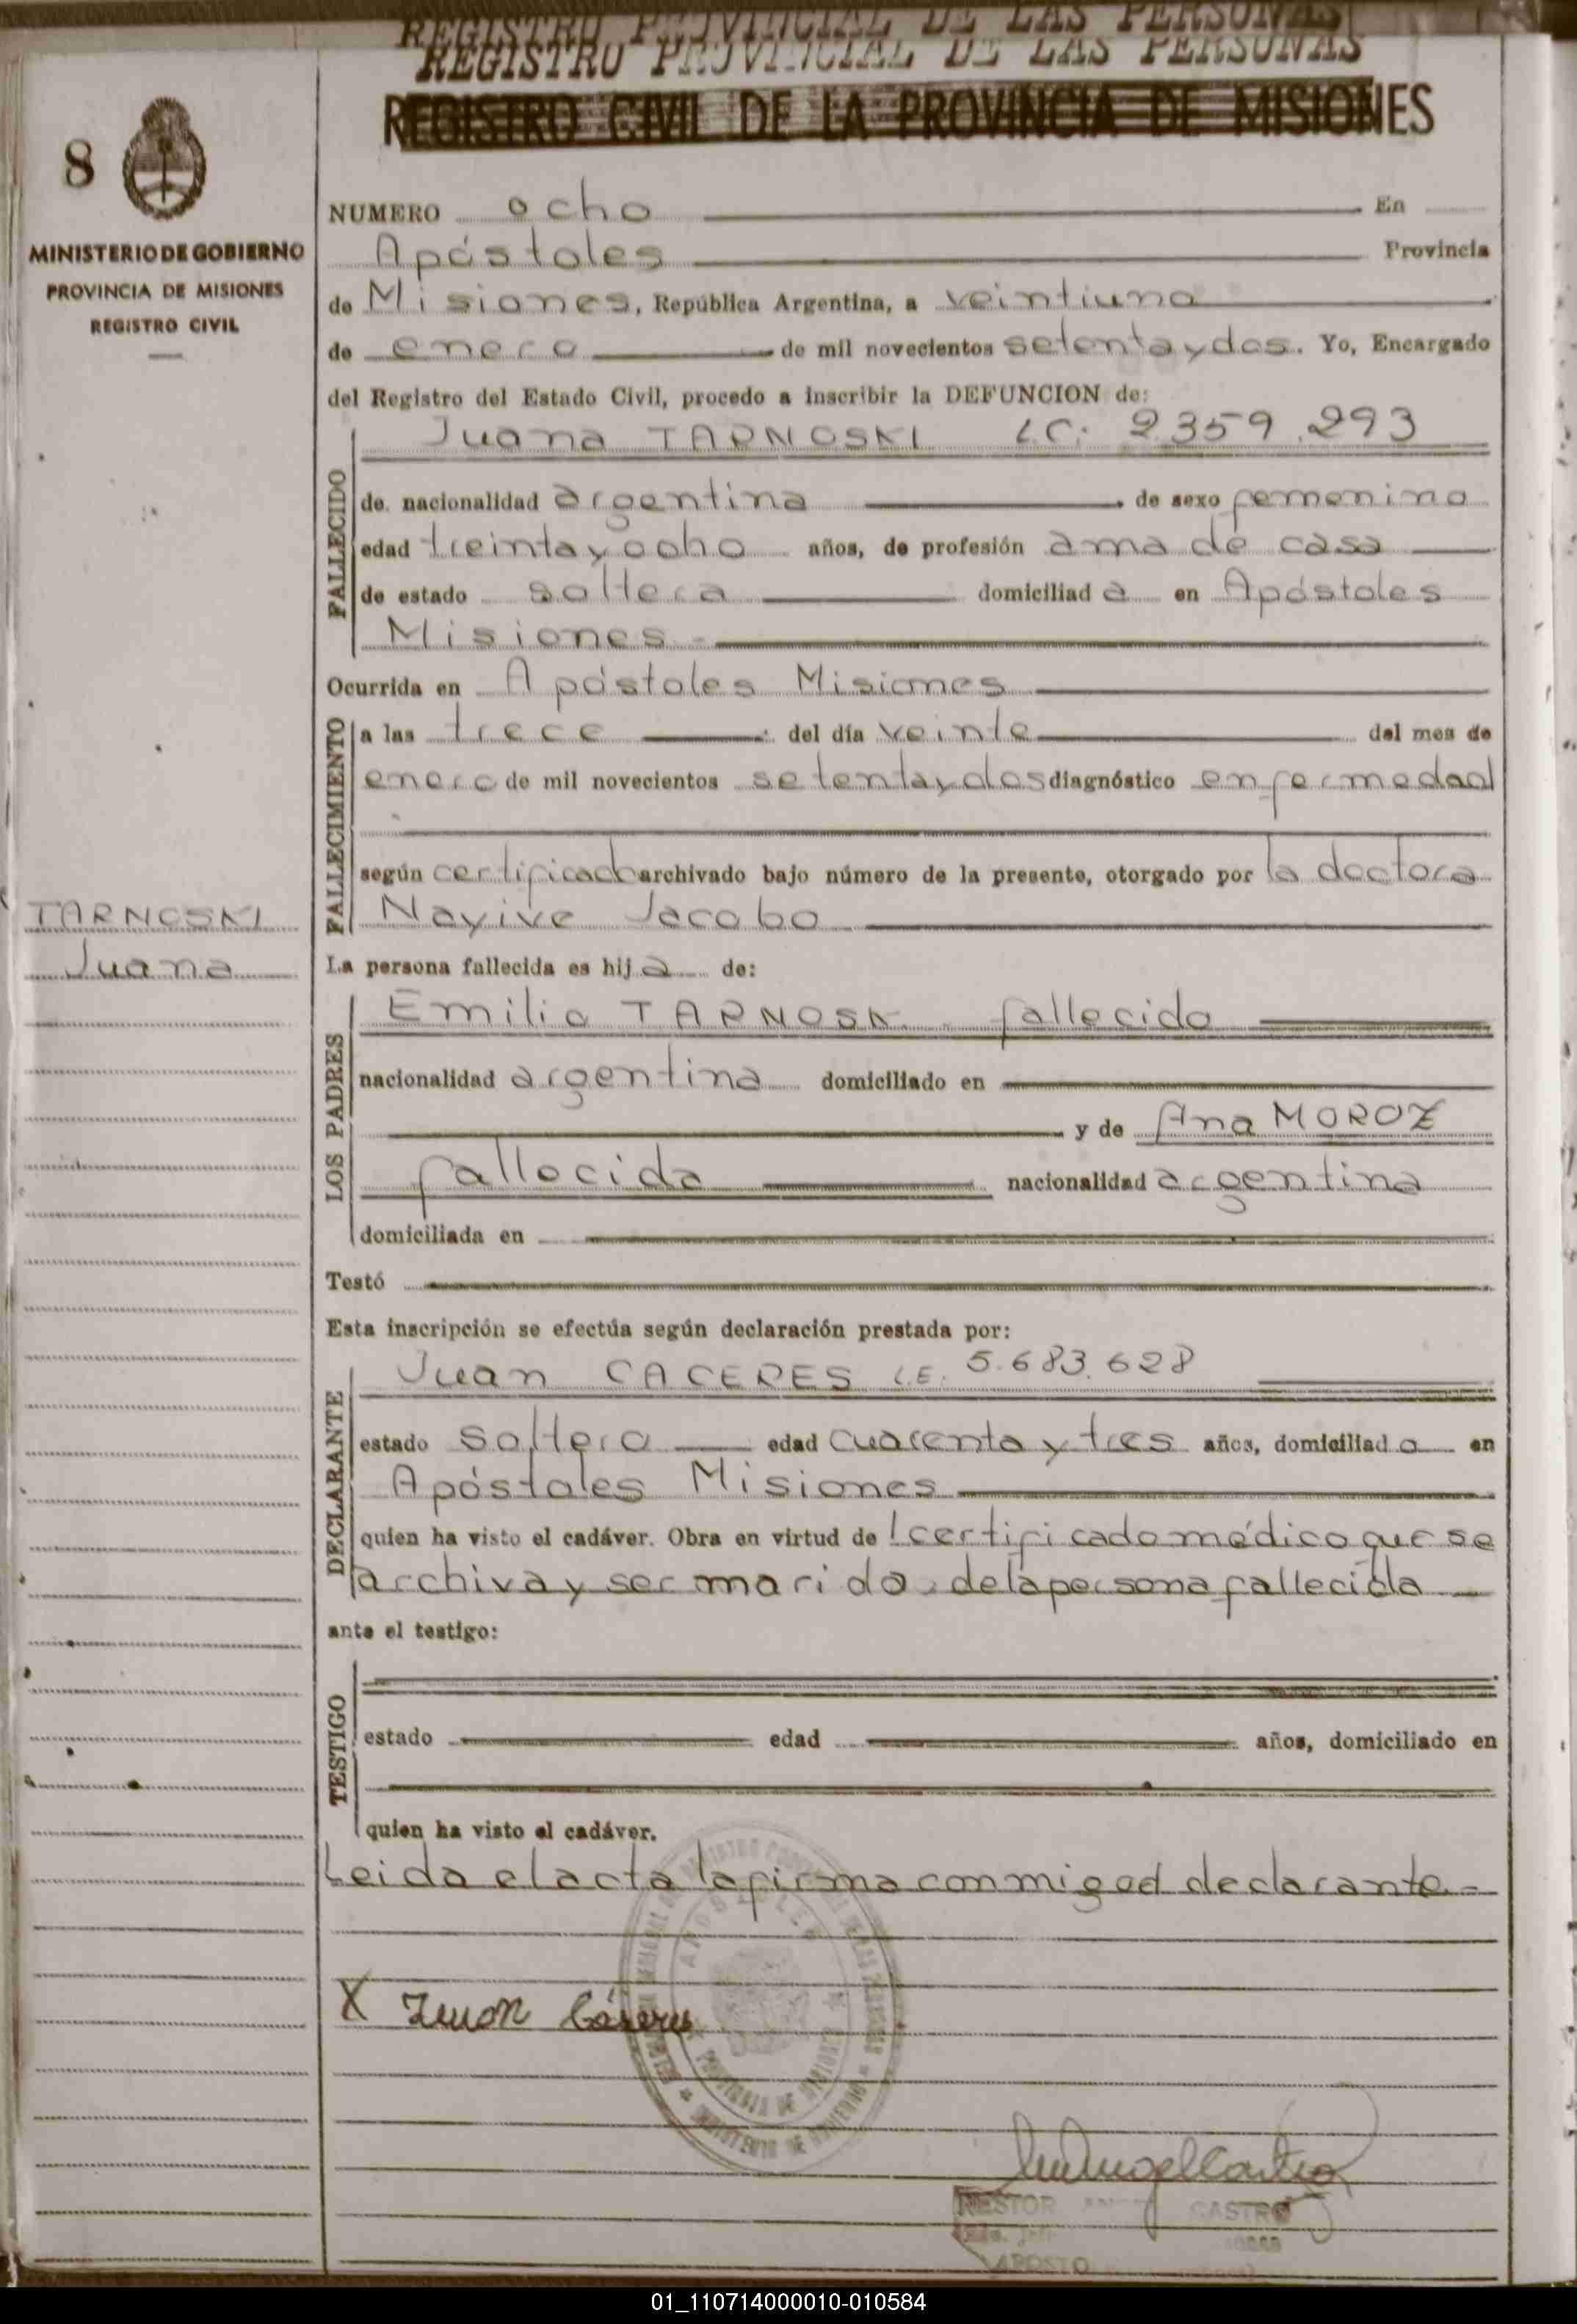 REGISTRO PROVINCIAL DE LAS PERSONAS
REGISTRO PROVINCIAL DE LAS PERSONAS
REGISTRO CIVIL DE LA PROVINCIA DE MISIONES
8
MINISTERIO DE GOBIERNO
PROVINCIA DE MISIONES
REGISTRO CIVIL
TARNOSKI
Juana
NUMERO ocho En
Apóstoles Provincia
de Misiones, República Argentina, a veintiuno
de enero de mil novecientos setenta y dos. Yo, Encargado
del Registro del Estado Civil, procedo a inscribir la DEFUNCION de:
FALLECIDO
Juana TARNOSKI L.C. 2359.293
de nacionalidad argentina de sexo femenino
edad treinta y ocho años, de profesión ama de casa
de estado soltera domiciliad a en Apóstoles
Misiones
Ocurrida en Apóstoles Misiones
FALLECIMIENTO
a las trece del día veinte del mes de
enero de mil novecientos setenta y dos diagnóstico enfermedad
según certificado archivado bajo número de la presente, otorgado por la doctora
Nayive Jacobo
La persona fallecida es hij a de:
LOS PADRES
Emilio TARNOSKI fallecido
nacionalidad argentina domiciliado en
y de Ana MOROZ
fallecida nacionalidad argentina
domiciliada en
Testó
Esta inscripción se efectúa según declaración prestada por:
DECLARANTE
Juan CACERES L.E. 5.683.628
estado soltero edad cuarenta y tres años, domiciliad o en
Apóstoles Misiones
quien ha visto el cadáver. Obra en virtud de l certificado médico que se
archiva y ser marido de la persona fallecida
ante el testigo:
TESTIGO
estado edad años, domiciliado en
quien ha visto el cadáver.
Leida el acta la firma conmigo el declarante.-
X Juan Cáceres
APOSTOLES
PROVINCIA DE MISIONES
MINISTERIO DE GOBIERNO
NESTOR CASTRO
01_110714000010-010584